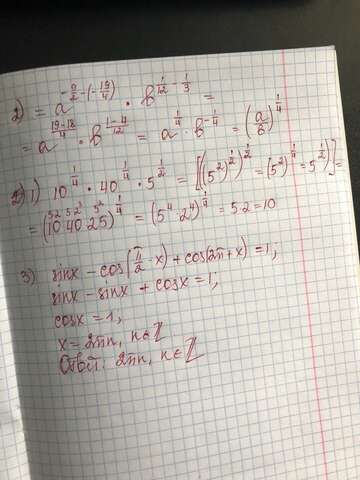 2) = a^{-\frac{9}{2}-(-\frac{19}{4})} · b^{\frac{1}{12}-\frac{1}{3}} =
= a^{\frac{19-18}{4}} · b^{\frac{1-4}{12}} = a^{\frac{1}{4}} · b^{-\frac{1}{4}} = (\frac{a}{b})^{\frac{1}{4}}
2) 1) 10^{\frac{1}{4}} · 40^{\frac{1}{4}} · 5^{\frac{1}{2}} = [((5^2)^{\frac{1}{2}})^{\frac{1}{2}} = (5^2)^{\frac{1}{4}} = 5^{\frac{1}{2}}] =
= (10·40·25)^{\frac{1}{4}} = (5^4·2^4)^{\frac{1}{4}} = 5·2 = 10
3) sinx - cos(\frac{π}{2} - x) + cos(2π + x) = 1;
sinx - sinx + cosx = 1;
cosx = 1;
x = 2πn, n∈ℤ
Ответ: 2πn, n∈ℤ